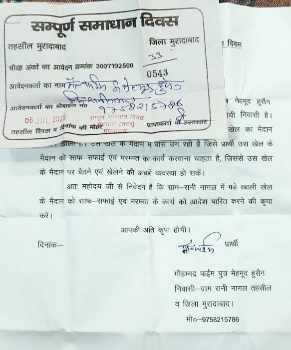 सम्पूर्ण समाधान दिवस
तहसील मुरादाबाद
जिला मुरादाबाद
33
चौदह अंकों का आवेदन क्रमांक 3007192500
0543
आवेदनकर्ता का नाम
आवेदनकर्ता का मोबाइल नं०
9758215786
तहसील दिवस व दिनांक की मोहर
दिवस
मेहमूद हुसैन
निवासी है।
खेल का मैदान
खेल के मैदान में घास उग रही है जिसे प्रार्थी उस खेल के
मैदान को साफ-सफाई एवं मरम्मत का कार्य करवाना चाहता है, जिससे उस खेल
के मैदान पर बैठने एवं खेलने की अच्छी व्यवस्था हो सके।
अतः महोदय जी से निवेदन है कि ग्राम-रानी नागल में पड़े खाली खेल
के मैदान को साफ-सफाई एवं मरम्मत के कार्य को आदेश पारित करने की कृपा
करें।
आपकी अति कृपा होगी।
दिनांक-
प्रार्थी
मौहम्मद फईम पुत्र मेहमूद हुसैन
निवासी-ग्राम रानी नागल तहसील
व जिला मुरादाबाद।
मो०-9758215786